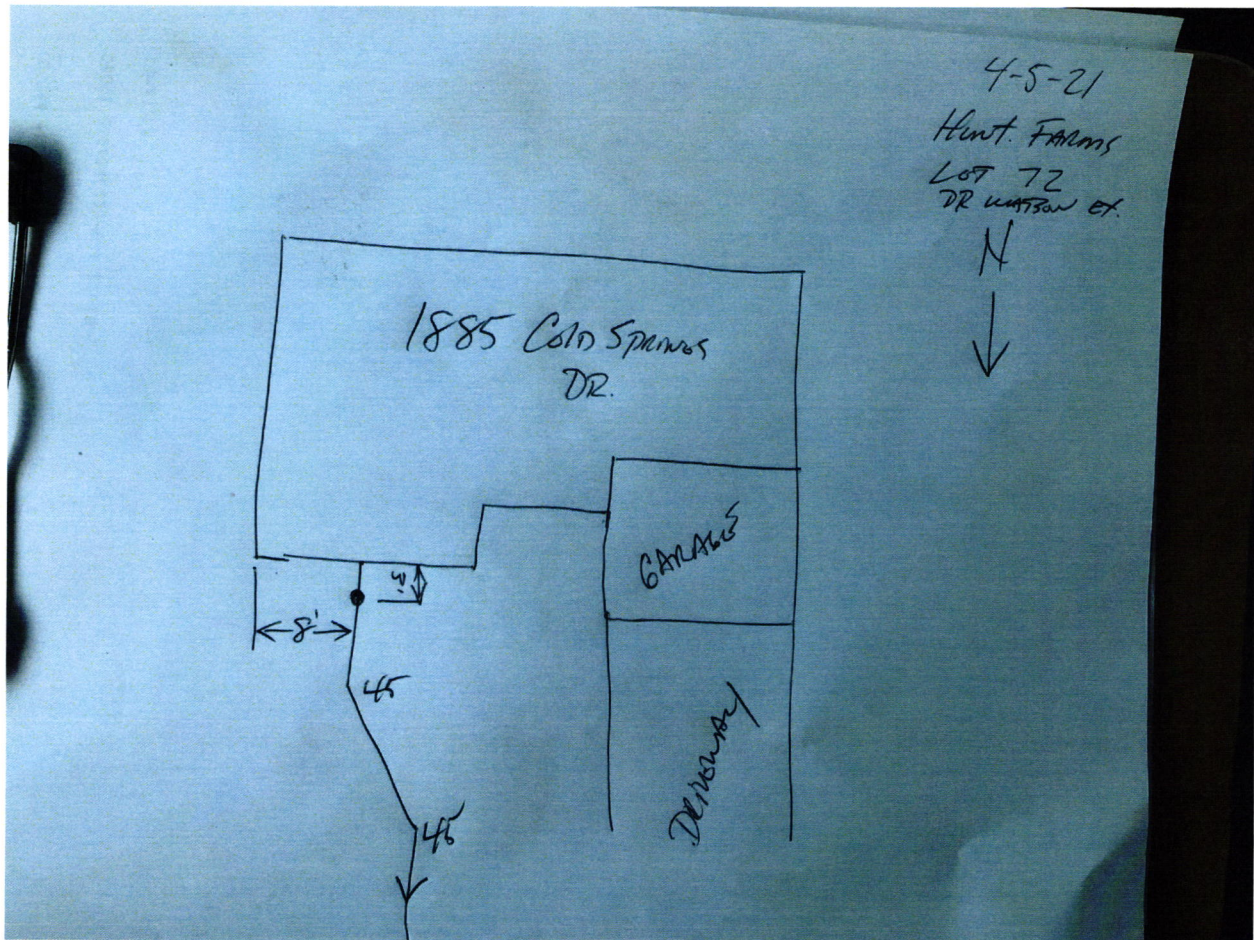 4-5-21
Hunt. FARMS
LOT 72
DR WATSON EX.
N
1885 COLD SPRINGS
DR.
GARAGE
3'
8'
45
45
DRIVEWAY